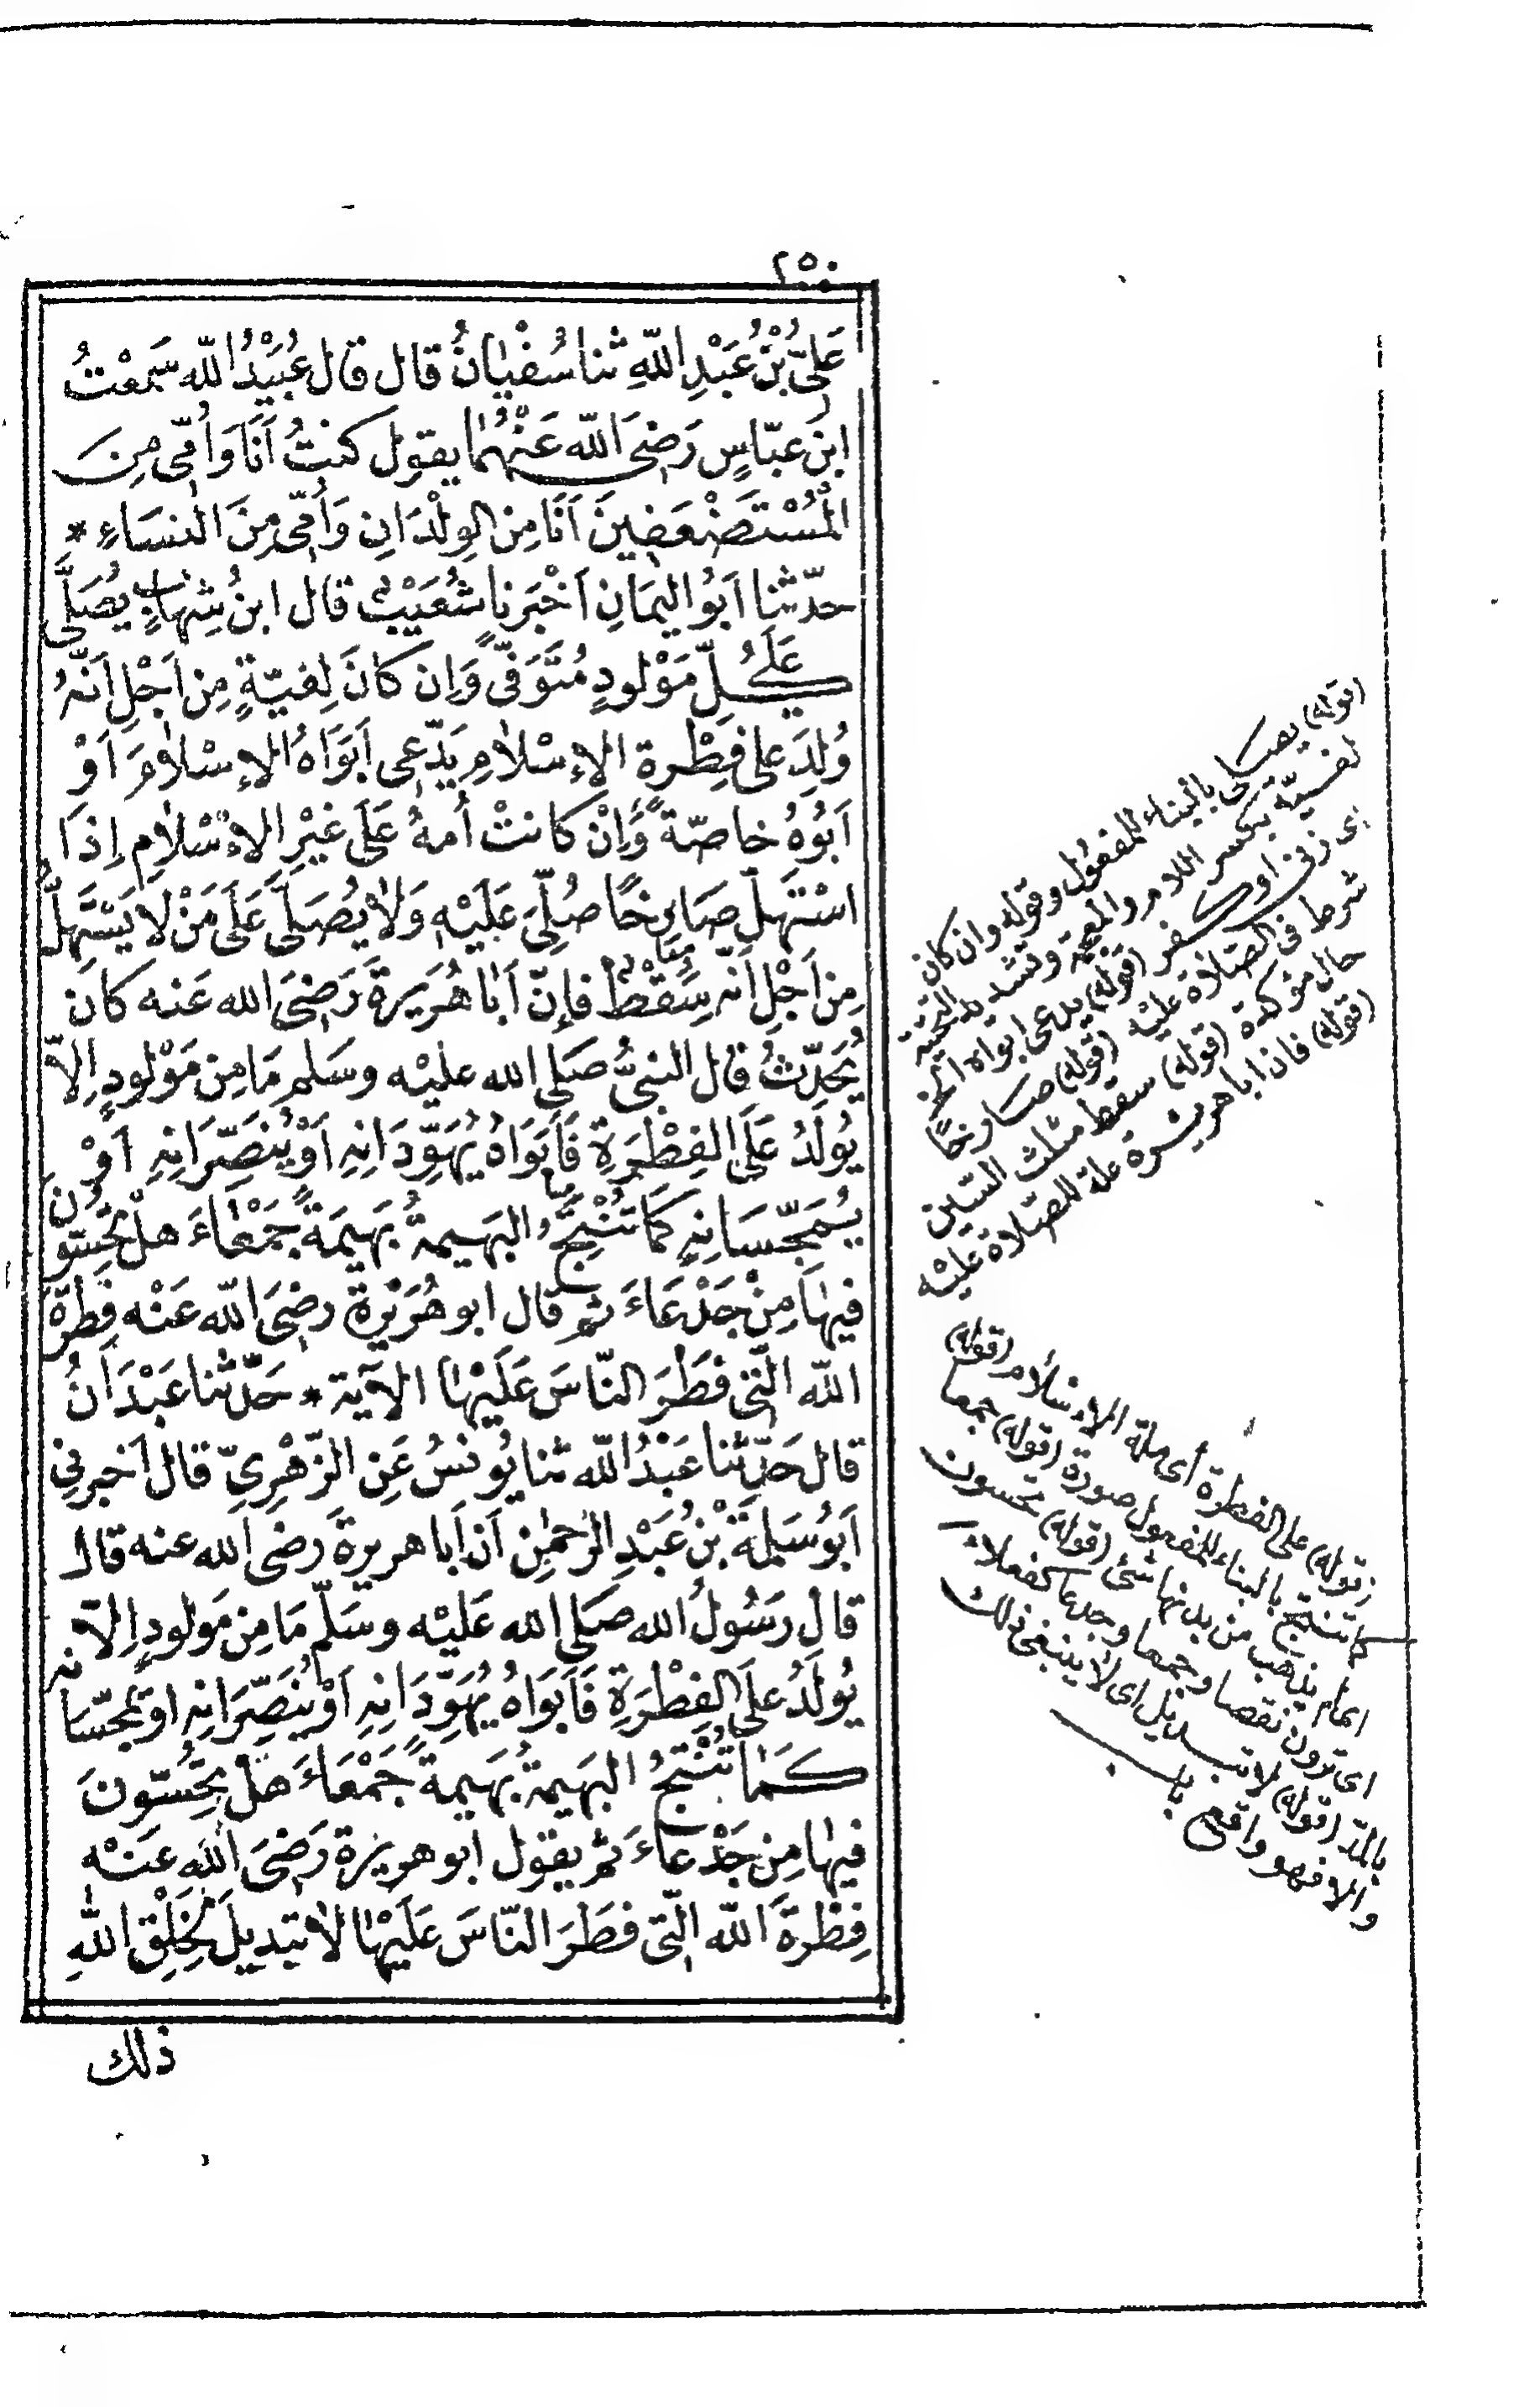 ٢٥٠
عَلِيُّ بْنُ عَبْدِ اللّٰهِ ثنا سُفْيَانُ قال قال عُبَيْدُ اللّٰه سَمِعْتُ
ابنَ عبّاسٍ رَضِىَ اللّٰه عَنْهُمَا يقول كنتُ اَنَا وَاُمِّى مِنَ
المُسْتَضْعَفِينَ اَنَا مِنَ الوِلْدَانِ وَاُمِّى مِنَ النسَاءِ *
حدّثنا اَبُو اليمَانِ اَخْبَرنا شُعَيْبٌ قال ابنُ شِهَابٍ يُصَلَّى
عَلَى كُلِّ مَوْلُودٍ مُتَوَفًّى وَاِن كانَ لِغيّةٍ مِن اَجْلِ اَنَّهُ
وُلِدَ على فِطْرة الاِسْلامِ يَدّعى اَبَوَاهُ الاِسْلامَ اَوْ
اَبُوهُ خاصّةً وَاِنْ كانتْ اُمهُ عَلَى غيْرِ الاِسْلامِ اِذَا
اسْتَهلّ صَارِخًا صُلِّىَ عَلَيْه وَلا يُصَلَّى عَلَى مَنْ لا يَسْتَهِلُّ
مِن اَجْلِ اَنّه سِقْطٌ فإنّ اَبا هُرَيرةَ رَضِىَ الله عَنه كانَ
يُحَدِّثُ قال النبىُّ صَلى الله عليْه وسَلم مَا مِن مَوْلودٍ اِلاّ
يُولَدُ عَلَى الفِطْرَةِ فَاَبَوَاهُ يُهَوِّدَانِهِ اَوْ يُنَصِّرَانِهِ اَوْ
يُمَجّسَانِهِ كَمَا تُنْتِجُ البَهِيمةُ بَهِيمَةً جَمْعَاءَ هلْ تُحِسّونَ
فيهَا مِنْ جَدْعَاءَ ثم قال ابو هُرَيْرة رضِىَ اللّٰه عَنْه فِطرَةَ
اللّٰه الّتى فطَرَ النّاسَ عَلَيْهَا الآيَة * حَدّثنا عَبْدَانُ
قال حَدّثنا عَبْدُ اللّٰه ثنا يُونسُ عَنِ الزّهْرِىِّ قال اَخبرنِى
اَبُو سَلَمَةَ بْنُ عَبْدِ الرّحمٰنِ اَن اَبا هريرةَ رضى الله عنه قال
قال رَسُولُ الله صَلى الله عَليْه وسَلّم مَا مِن مَولودٍ اِلاّ
يُولَدُ عَلَى الفِطْرَةِ فَاَبَوَاهُ يُهَوِّدَانِهِ اَوْ يُنَصِّرَانِهِ او يُمَجّسَانِهِ
كَمَا تُنْتجُ البَهِيمةُ بَهِيمةً جَمْعَاءَ هَلْ تحِسّونَ
فيهَا مِن جَدْعاءَ ثم يقول ابو هريْرة رَضىَ الله عَنْه
فِطْرةَ اللّٰه الّتى فطَرَ النّاسَ عَلَيْهَا لا تبَديلَ لخِلْقِ اللّٰهِ
ذلك
(قوله) يصلى بالبناء للمفعول وقوله وان كان
لغيّة بكسر اللام والمعجمة وتشديد التحتية
اى زنى او كفر (قوله) يدعى ابواه الخ
شرط فى الصّلاة عليْه (قوله) صارخًا
حال مؤكدة (قوله) سقط مثلث السّين
(قوله) فان ابا هريرة علة للصّلاة عليْه
(قوله) على الفطرة أى ملة الاسْلام (قوله)
كما تنتج بالبناء للمفعول صورة (قوله) جمعا
اى لم يذهب من بدنها شئ (قوله) تحسون
اى ترون نقصا وجمعا وجدعا كفعلاء
بالمد (قوله) لا تبديل اى لا ينبغى ذلك
والا فهو واقع باب